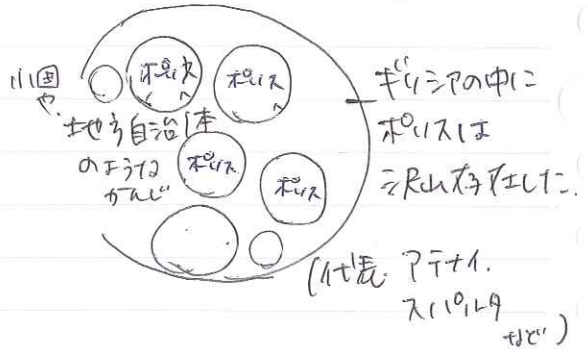 小国
や
地方自治体
のような
かんじ
ポリス
ポリス
ポリス
ポリス
ギリシアの中に
ポリスは
沢山存在した。
(代表 アテナイ.
スパルタ
など)